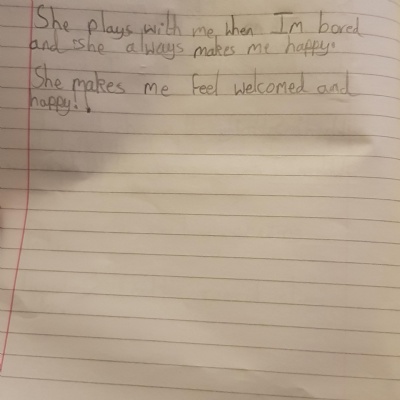 She plays with me when Im bored
and she always makes me happy.
She makes me feel welcomed and
happy!